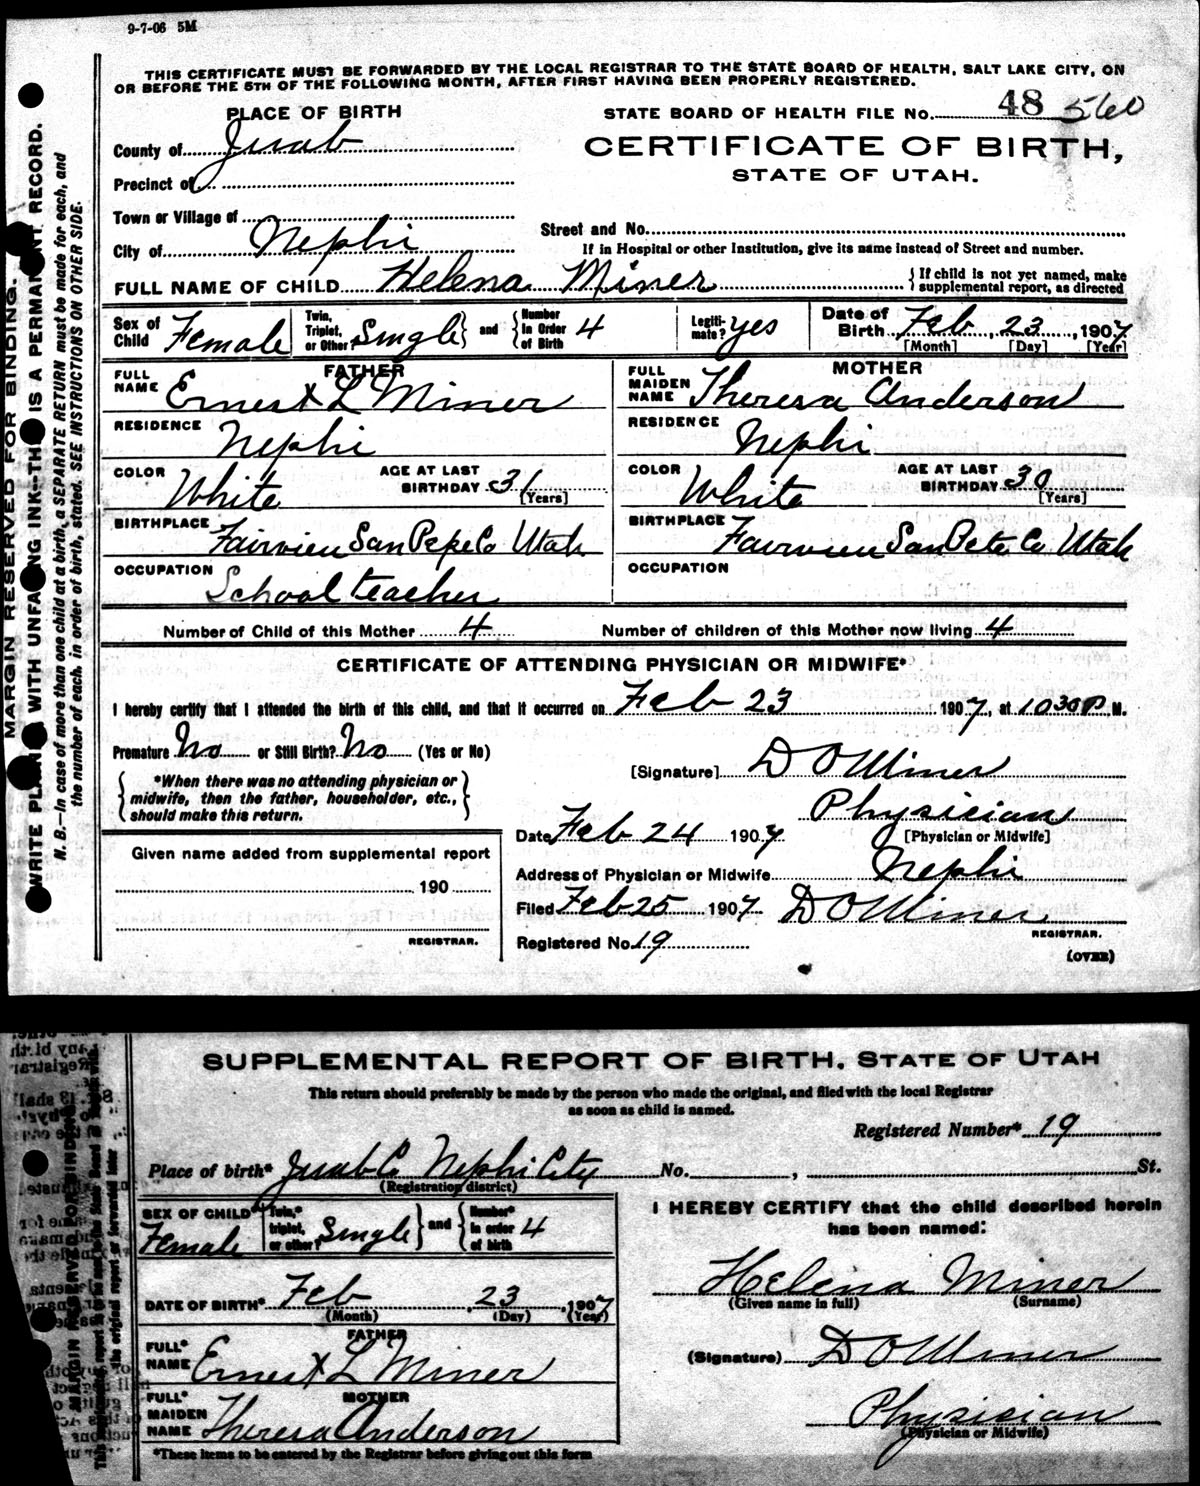 9-7-06 5M
THIS CERTIFICATE MUST BE FORWARDED BY THE LOCAL REGISTRAR TO THE STATE BOARD OF HEALTH, SALT LAKE CITY, ON
OR BEFORE THE 5TH OF THE FOLLOWING MONTH, AFTER FIRST HAVING BEEN PROPERLY REGISTERED.
MARGIN RESERVED FOR BINDING.
WRITE PLAINLY WITH UNFADING INK—THIS IS A PERMANENT RECORD.
N. B.—In case of more than one child at a birth, a SEPARATE RETURN must be made for each, and
the number of each, in order of birth, stated. SEE INSTRUCTIONS ON OTHER SIDE.
PLACE OF BIRTH
County of Juab
Precinct of
Town or Village of
City of Nephi
STATE BOARD OF HEALTH FILE NO. 48 560
CERTIFICATE OF BIRTH,
STATE OF UTAH.
Street and No.
If in Hospital or other Institution, give its name instead of Street and number.
FULL NAME OF CHILD Helena Miner { If child is not yet named, make
supplemental report, as directed
Sex of Child Female
Twin, Triplet, or Other? Single } and { Number in Order of Birth 4
Legitimate? yes
Date of Birth Feb, 23, 1907
[Month] [Day] [Year]
FATHER
FULL NAME Ernest L Miner
RESIDENCE Nephi
COLOR White AGE AT LAST BIRTHDAY 31 [Years]
BIRTHPLACE Fairview San Pete Co Utah
OCCUPATION School teacher
MOTHER
FULL MAIDEN NAME Theresa Anderson
RESIDENCE Nephi
COLOR White AGE AT LAST BIRTHDAY 30 [Years]
BIRTHPLACE Fairview San Pete Co Utah
OCCUPATION
Number of Child of this Mother 4 Number of children of this Mother now living 4
CERTIFICATE OF ATTENDING PHYSICIAN OR MIDWIFE*
I hereby certify that I attended the birth of this child, and that it occurred on Feb 23 1907, at 10 30 P.M.
Premature No or Still Birth? No (Yes or No)
{ *When there was no attending physician or
midwife, then the father, householder, etc.,
should make this return. }
[Signature] D O Miner
Physician
[Physician or Midwife]
Date Feb 24 1907
Address of Physician or Midwife Nephi
Filed Feb 25 1907 D O Miner
REGISTRAR.
Registered No. 19
(OVER)
Given name added from supplemental report
190
REGISTRAR.
SUPPLEMENTAL REPORT OF BIRTH, STATE OF UTAH
This return should preferably be made by the person who made the original, and filed with the local Registrar
as soon as child is named.
Registered Number* 19
Place of birth* Juab Co Nephi City No. , St.
(Registration district)
SEX OF CHILD* Female
Twin,* triplet, or other? Single } and { Number* in order of birth 4
DATE OF BIRTH* Feb, 23, 1907
(Month) (Day) (Year)
FATHER
FULL* NAME Ernest L Miner
MOTHER
FULL* MAIDEN NAME Theresa Anderson
*These items to be entered by the Registrar before giving out this form
I HEREBY CERTIFY that the child described herein
has been named:
Helena Miner
(Given name in full) (Surname)
(Signature) D O Miner
Physician
(Physician or Midwife)